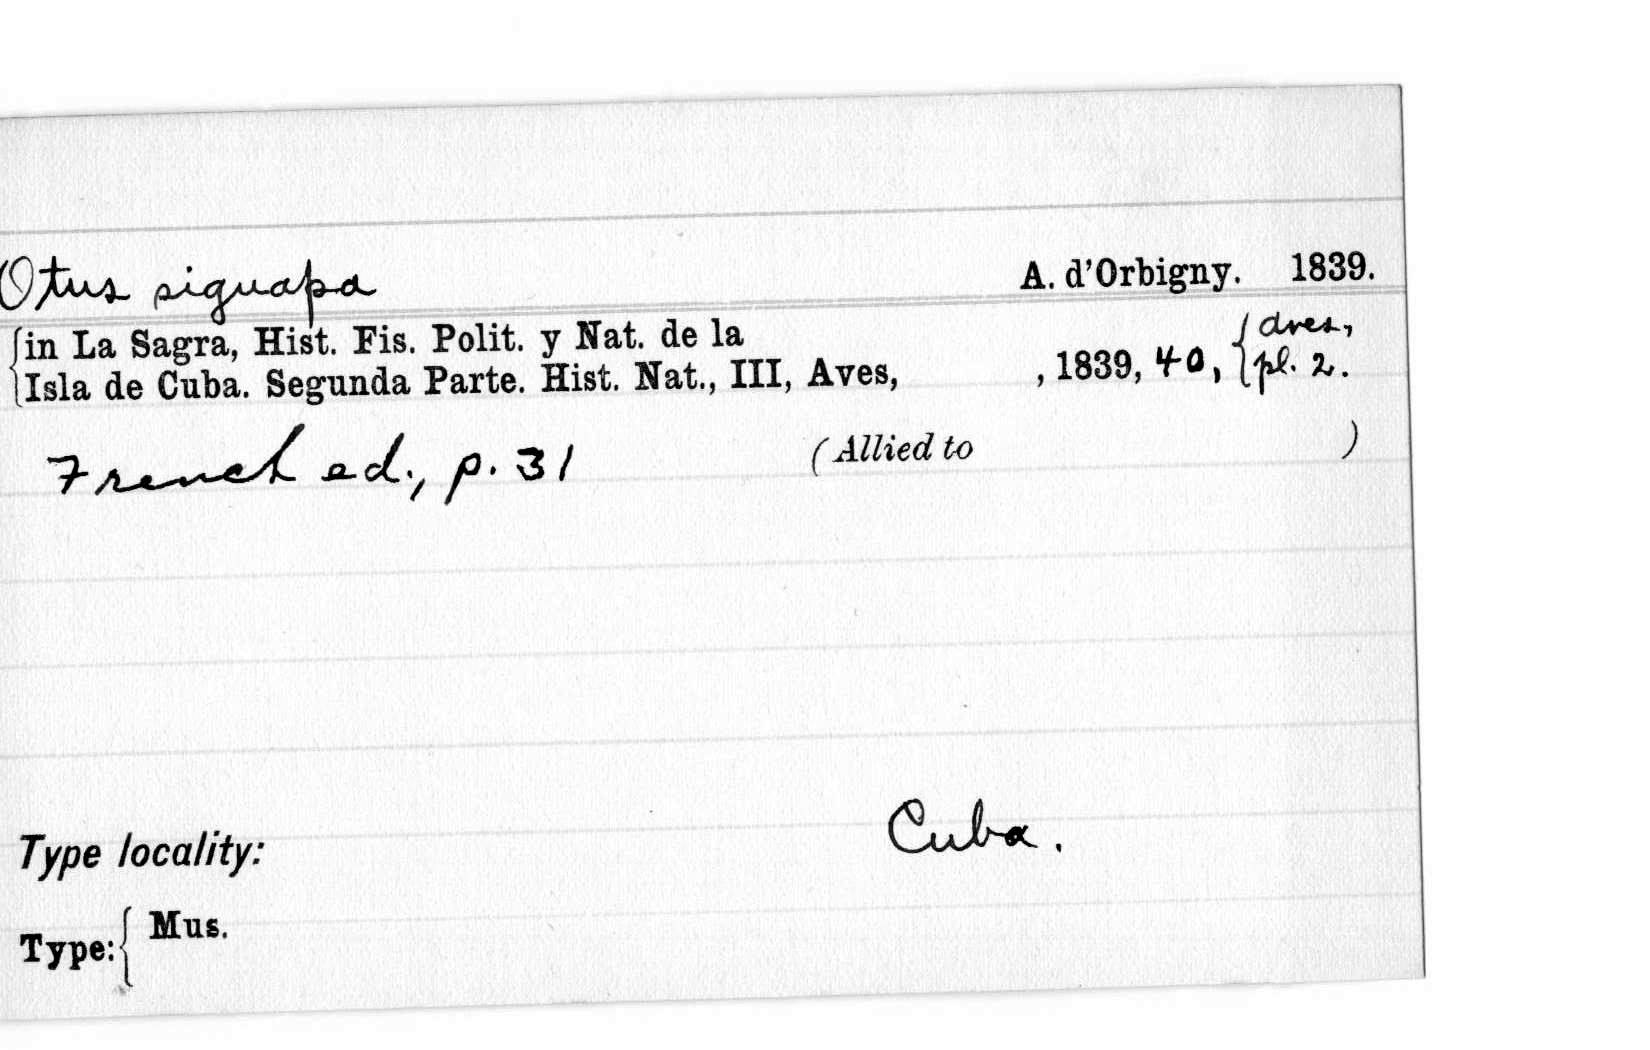 Otus siguapa A. d'Orbigny. 1839.
in La Sagra, Hist. Fis. Polit. y Nat. de la
Isla de Cuba. Segunda Parte. Hist. Nat., III, Aves, , 1839, 40, Aves, pl. 2.
French ed., p. 31 (Allied to )
Type locality: Cuba.
Type: Mus.